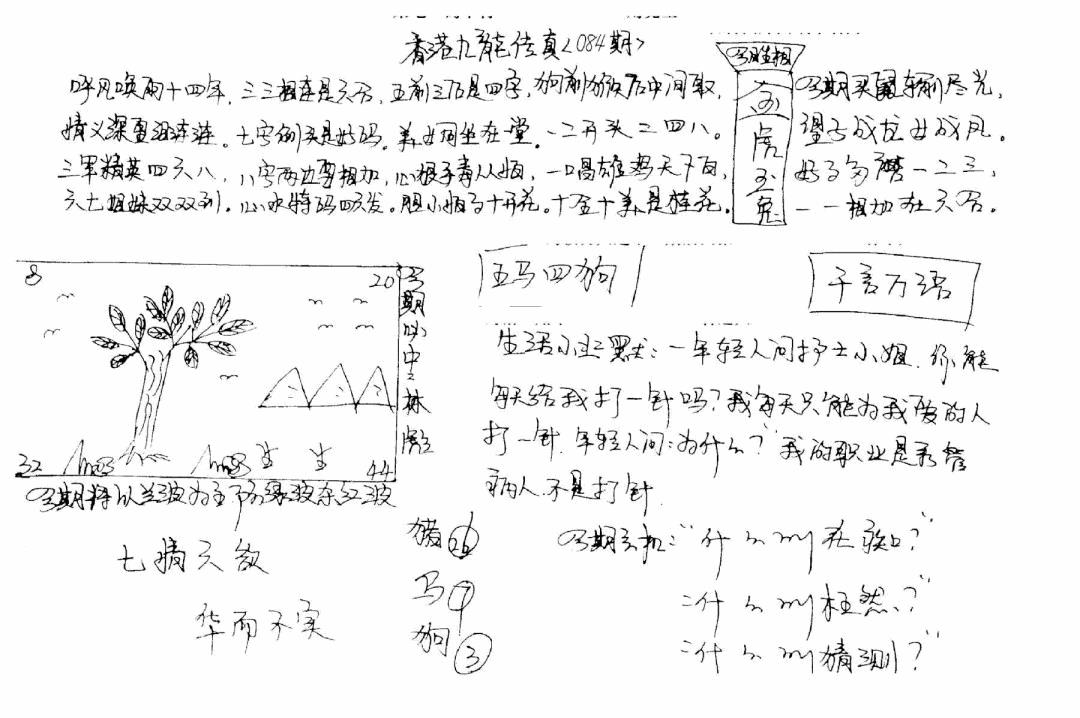 香港九龙传真<084期>
呼风唤雨十四年，三三相连是六合，五前三后是四字，狗前猴后中间取，
情义深重沼连连。七字例头是好码。美女同坐在堂。一二开头二四八。
三军精英四六八，八字两边要相加，心狠手毒从恼，一唱雄鸡天下白，
六七姐妹双双到。心水特码四六发。胆小怕事十开花。十全十美是桂花。
今期生相
六合
虎
玉
兔
今期买鼠输尽光，
望子成龙女成凤。
好事多磨一二三，
一一相加在六合。
8
20
32
44
今期必中林彪
今期特以兰波为主防绿波杀红波
五马四狗
千言万语
生活小幽默：一年轻人问护士小姐．你能
每天给我打一针吗？我每天只能为我爱的人
打一针．年轻人问：为什么？我的职业是看管
病人．不是打针．
七情六欲
华而不实
猪 26
马 7
狗 3
今期玄机："什么叫在家？"
"什么叫枉然？"
"什么叫猜测？"